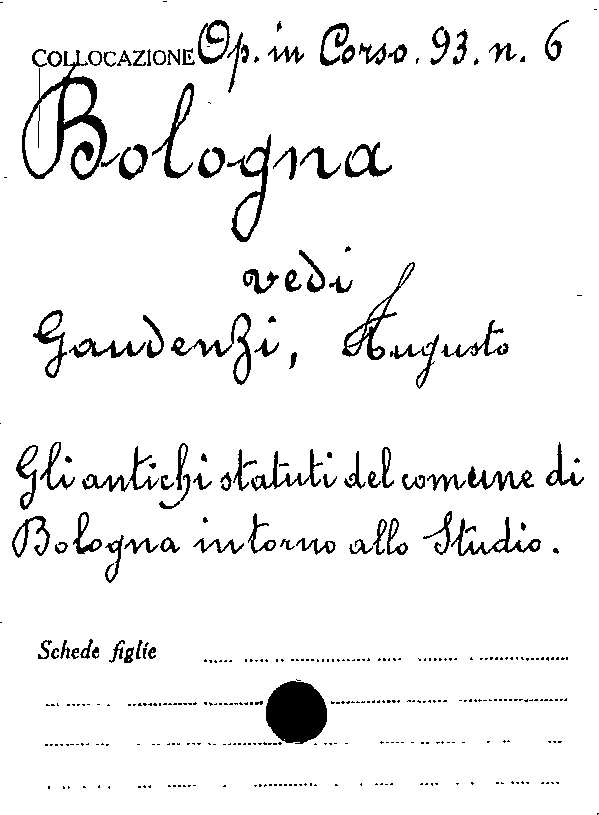 COLLOCAZIONE Op. in Corso. 93. n. 6
Bologna
vedi
Gaudenzi, Augusto
Gli antichi statuti del comune di
Bologna intorno allo Studio.
Schede figlie